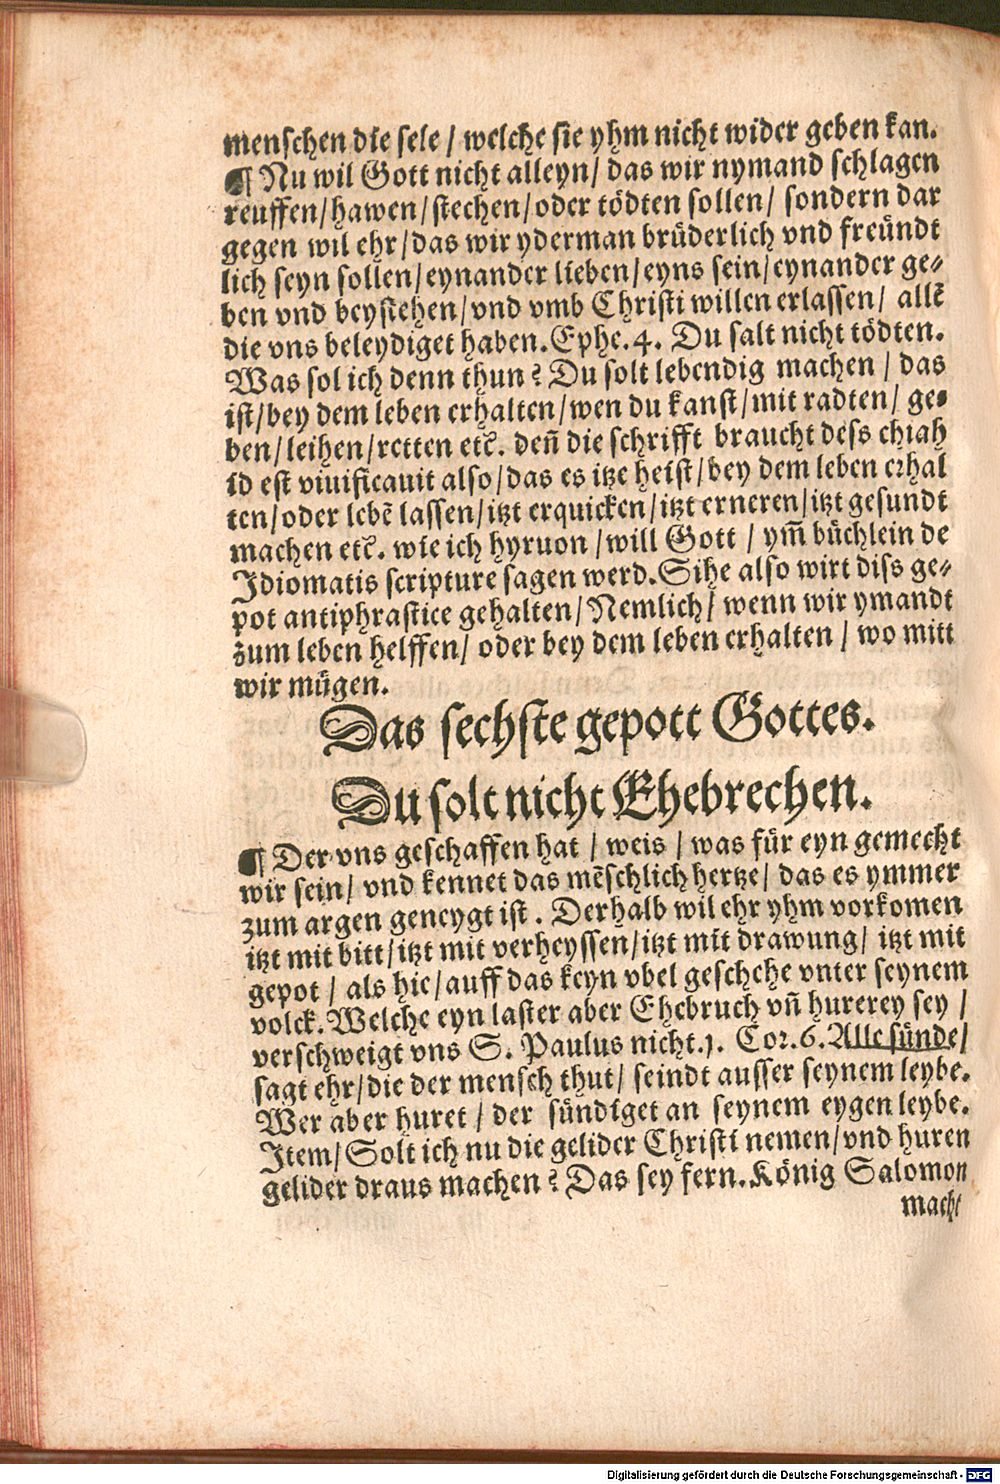 menschen die sele / welche sie yhm nicht wider geben kan.
¶ Nu wil Gott nicht alleyn / das wir nymand schlagen
reuffen / hawen / stechen / oder tödten sollen / sondern dar
gegen wil ehr / das wir yderman brüderlich vnd freündt
lich seyn sollen / eynander lieben / eyns sein / eynander ge⸗
ben vnd beystehen / vnd vmb Christi willen erlassen / allē
die vns beleydiget haben. Ephe. 4. Du salt nicht tödten.
Was sol ich denn thun? Du solt lebendig machen / das
ist / bey dem leben erhalten / wen du kanst / mit radten / ge⸗
ben / leihen / retten etc̄. deñ die schrifft braucht dess chiah
id est viuificauit also / das es itze heist / bey dem leben erhal
ten / oder lebē lassen / itzt erquicken / itzt erneren / itzt gesundt
machen etc̄. wie ich hyruon / will Gott / ym̄ büchlein de
Idiomatis scripture sagen werd. Sihe also wirt diss ge⸗
pot antiphrastice gehalten / Nemlich / wenn wir ymandt
zum leben helffen / oder bey dem leben erhalten / wo mitt
wir mügen.
Das sechste gepott Gottes.
Du solt nicht Ehebrechen.
¶ Der vns geschaffen hat / weis / was für eyn gemecht
wir sein / vnd kennet das mēschlich hertze / das es ymmer
zum argen geneygt ist. Derhalb wil ehr yhm vorkomen
itzt mit bitt / itzt mit verheyssen / itzt mit drawung / itzt mit
gepot / als hie / auff das keyn vbel geschehe vnter seynem
volck. Welche eyn laster aber Ehebruch vñ hurerey sey /
verschweigt vns S. Paulus nicht. 1. Cor. 6. Alle sünde /
sagt ehr / die der mensch thut / seindt ausser seynem leybe.
Wer aber huret / der sündiget an seynem eygen leybe.
Item / Solt ich nu die gelider Christi nemen / vnd huren
gelider draus machen? Das sey fern. König Salomon
macht
Digitalisierung gefördert durch die Deutsche Forschungsgemeinschaft - DFG